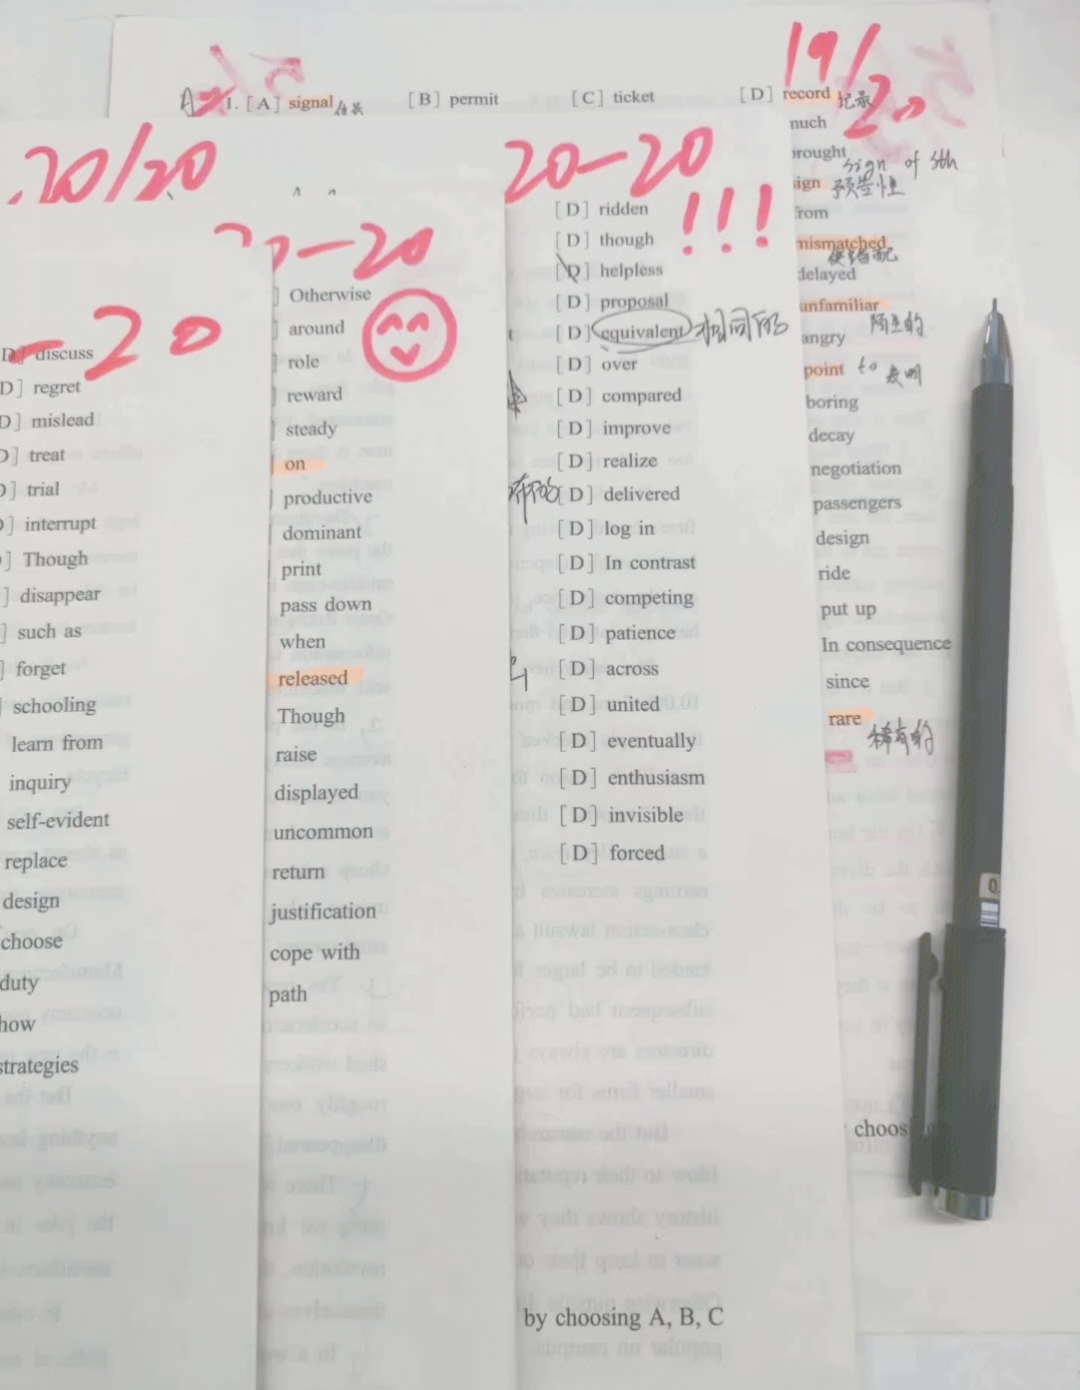 19/20
1. [A] signal [B] permit [C] ticket [D] record 记录
much
brought
sign of sth
sign 预告性
from
mismatched
使错配
delayed
unfamiliar
陌生的
angry
point to 表明
boring
decay
negotiation
passengers
design
ride
put up
In consequence
since
rare
稀有的
choosi
20-20
!!!
[D] ridden
[D] though
[D] helpless
[D] proposal
[D] equivalent 相同的
[D] over
[D] compared
[D] improve
[D] realize
[D] delivered
[D] log in
[D] In contrast
[D] competing
[D] patience
[D] across
[D] united
[D] eventually
[D] enthusiasm
[D] invisible
[D] forced
by choosing A, B, C
20/20
-20
] Otherwise
] around
] role
] reward
] steady
on
productive
dominant
print
pass down
when
released
Though
raise
displayed
uncommon
return
justification
cope with
path
-20
D] discuss
D] regret
D] mislead
D] treat
D] trial
] interrupt
] Though
] disappear
] such as
] forget
] schooling
learn from
inquiry
self-evident
replace
design
choose
duty
how
strategies
Q